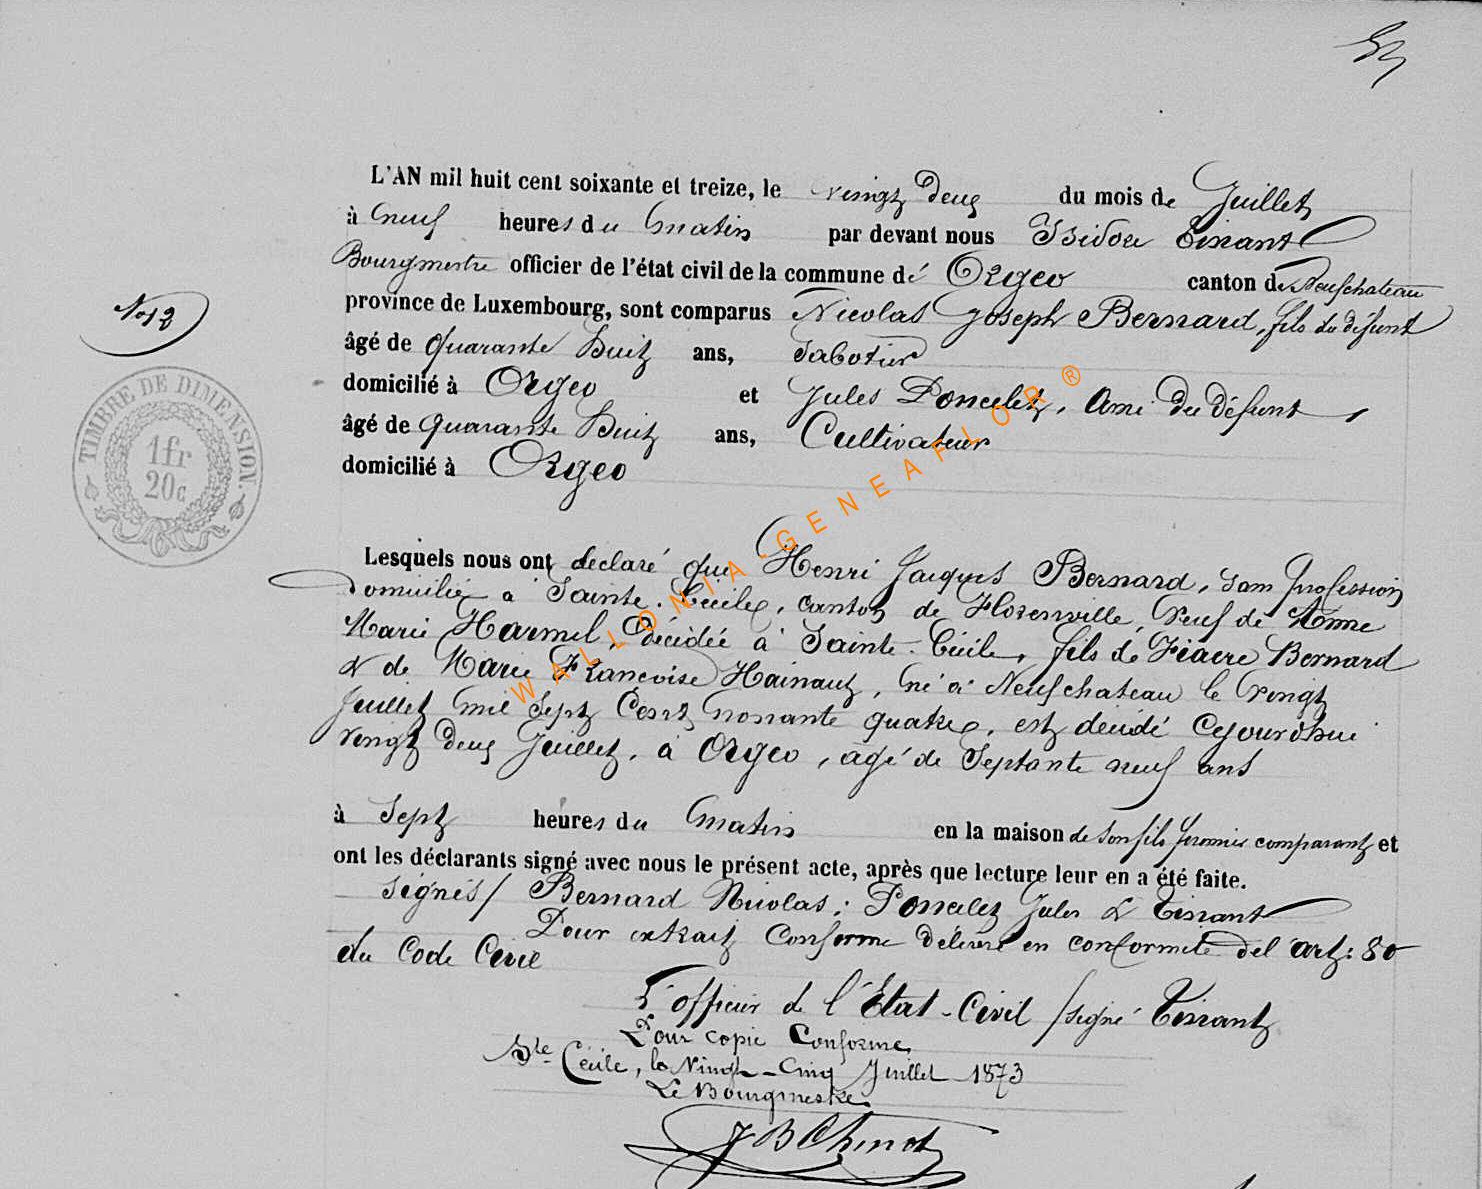 L'AN mil huit cent soixante et treize, le vingt deux du mois de Juillet
à neuf heures du matin par devant nous Isidore Tinant
Bourgmestre officier de l'état civil de la commune de Orgeo canton de Neufchateau
province de Luxembourg, sont comparus Nicolas Joseph Bernard, fils du défunt
âgé de quarante huit ans, Sabotier
domicilié à Orgeo et Jules Poncelet, ami du défunt,
âgé de quarante huit ans, Cultivateur
domicilié à Orgeo
No 12
TIMBRE DE DIMENSION.
1fr
20c
Lesquels nous ont déclaré que Henri Jacques Bernard, sans profession
domicilié à Sainte-Cécile, canton de Florenville, veuf de Anne
Marie Harmel, décédée à Sainte-Cécile, fils de Fiacre Bernard
& de Marie Françoise Hainaut, né à Neufchateau le vingt
Juillet mil sept cent nonante quatre, est décédé cejourd'hui
vingt deux Juillet, à Orgeo, agé de Septante neuf ans
à sept heures du matin en la maison de son fils premier comparant et
ont les déclarants signé avec nous le présent acte, après que lecture leur en a été faite.
Signés/ Bernard Nicolas; Poncelet Jules & Tinant
Pour extrait conforme délivré en conformité de l'art: 80
du Code Civil
L'officier de l'Etat-Civil /signé Tinant
Pour copie conforme,
Ste Cécile, le Vingt-Cinq Juillet 1873
Le Bourgmestre,
J B Chenot
WALLONIA-GENEAFLOR ®